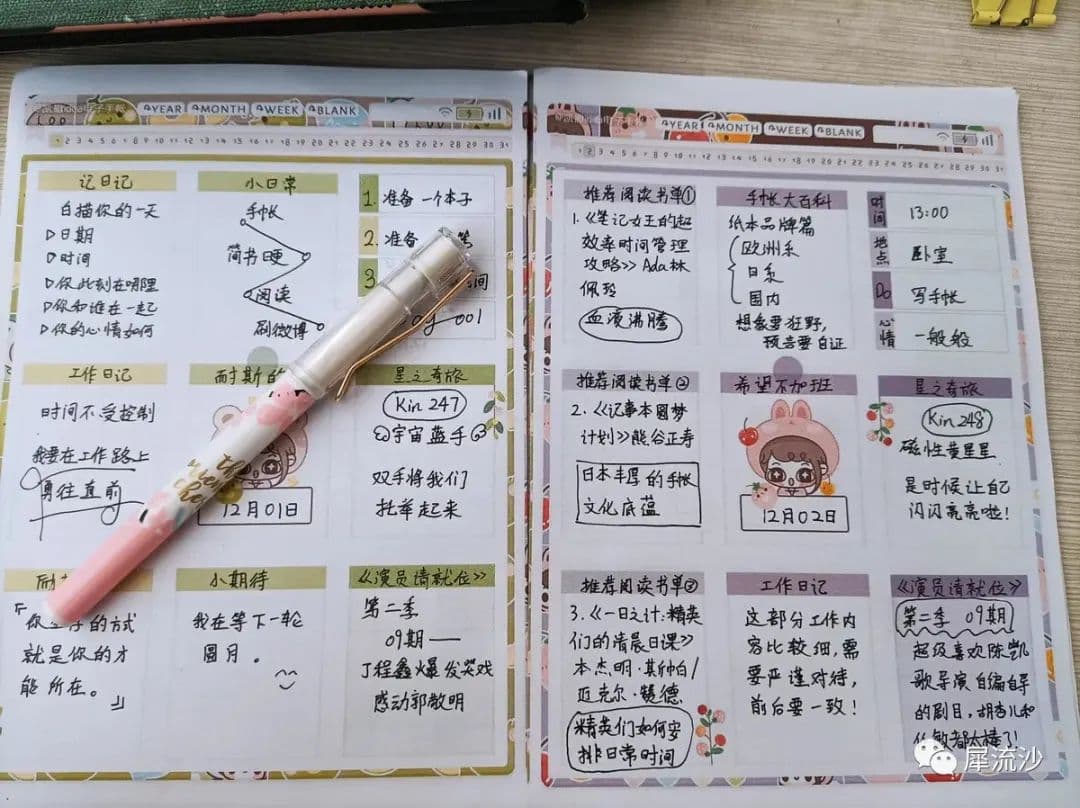 YEAR MONTH WEEK BLANK
1 2 3 4 5 6 7 8 9 10 11 12 13 14 15 16 17 18 19 20 21 22 23 24 25 26 27 28 29 30 31
记日记
白描你的一天
▷日期
▷时间
▷你此刻在哪里
▷你和谁在一起
▷你的心情如何
小日常
手帐
简书日更
阅读
刷微博
1. 准备一个本子
2. 准备
3.
间
001
工作日记
时间不受控制
我要在工作路上
勇往直前
耐斯的
12月01日
星之奇旅
Kin 247
宇宙蓝手
双手将我们
托举起来
励
『你
的方式
就是你的才
能所在。』
小期待
我在等下一轮
圆月。
《演员请就位》
第二季
09期——
丁程鑫爆发哭戏
感动郭敬明
YEAR MONTH WEEK BLANK
1 2 3 4 5 6 7 8 9 10 11 12 13 14 15 16 17 18 19 20 21 22 23 24 25 26 27 28 29 30 31
推荐阅读书单①
1.《笔记女王的超
效率时间管理
攻略》Ada林
佩玲
血液沸腾
手帐大百科
纸本品牌篇
欧洲系
日系
国内
想象要狂野,
预言要自证
时间 13:00
地点 卧室
Do 写手帐
心情 一般般
推荐阅读书单②
2.《记事本圆梦
计划》熊谷正寿
日本丰厚的手帐
文化底蕴
希望不加班
12月02日
星之奇旅
Kin 248
磁性黄星星
是时候让自己
闪闪亮亮啦!
推荐阅读书单③
3.《一日之计:精英
们的清晨日课》
本杰明·斯帕/
迈克尔·
精英们如何安
排日常时间
工作日记
这部分工作内
容比较细,需
要严谨对待,
前后要一致!
《演员请就位》
第二季 09期
超级喜欢陈凯
歌导演自编自导
的剧目,胡杏儿和
敏都太棒了!
犀流沙